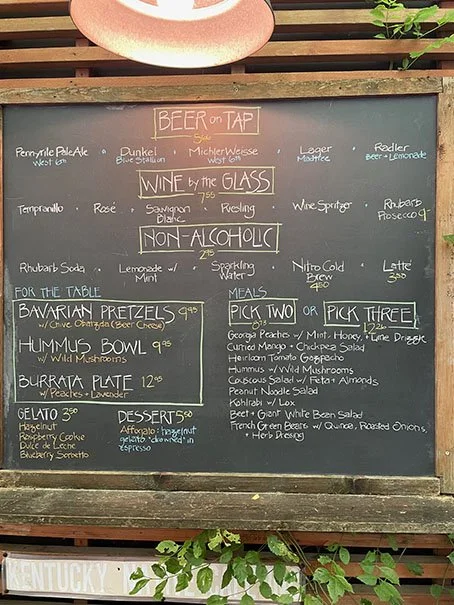 BEER on TAP
Pennyrile Pale Ale • Dunkel • Michler Weisse • Lager • Radler
West 6th Blue Stallion West 6th Madtree Beer + Lemonade
WINE by the GLASS
7⁵⁵
Tempranillo • Rosé • Sauvignon Blanc • Riesling • Wine Spritzer • Rhubarb Prosecco 9-
NON-ALCOHOLIC
2⁹⁵
Rhubarb Soda • Lemonade w/ Mint • Sparkling Water • Nitro Cold Brew 4⁵⁰ • Latté 3⁵⁰
FOR THE TABLE
BAVARIAN PRETZELS 9⁹⁵
w/ Chive Obatzda (Beer Cheese)
HUMMUS BOWL 9⁹⁵
w/ Wild Mushrooms
BURRATA PLATE 12⁹⁵
w/ Peaches + Lavender
MEALS
PICK TWO OR PICK THREE
Georgia Peaches w/ Mint, Honey, + Lime Drizzle
Curried Mango + Chickpea Salad
Heirloom Tomato Gazpacho
Hummus w/ Wild Mushrooms
Couscous Salad w/ Feta + Almonds
Peanut Noodle Salad
Kohlrabi w/ Lox
Beet + Giant White Bean Salad
French Green Beans w/ Quinoa, Roasted Onions,
+ Herb Dressing
GELATO 3⁵⁰
Hazelnut
Raspberry Cookie
Dulce de Leche
Blueberry Sorbetto
DESSERT 5⁵⁰
Affogato: hazelnut
gelato "drowned" in
espresso
KENTUCKY